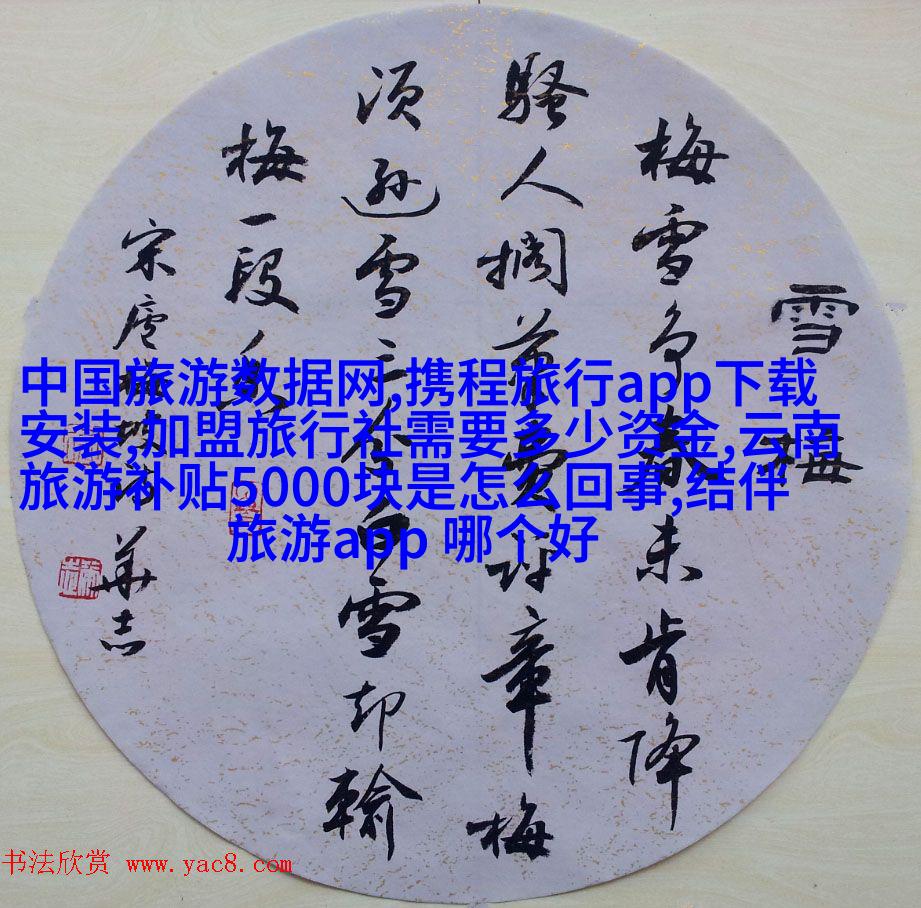 雪梅
梅雪争春未肯降
騷人擱筆費評章梅
须遜雪三分白雪却輸
梅一段香
宋盧梅坡诗 華志
中国旅游数据网,携程旅行app下载
安装,加盟旅行社需要多少资金,云南
旅游补贴5000块是怎么回事,结伴
旅游app 哪个好
书法欣赏 www.yac8.com